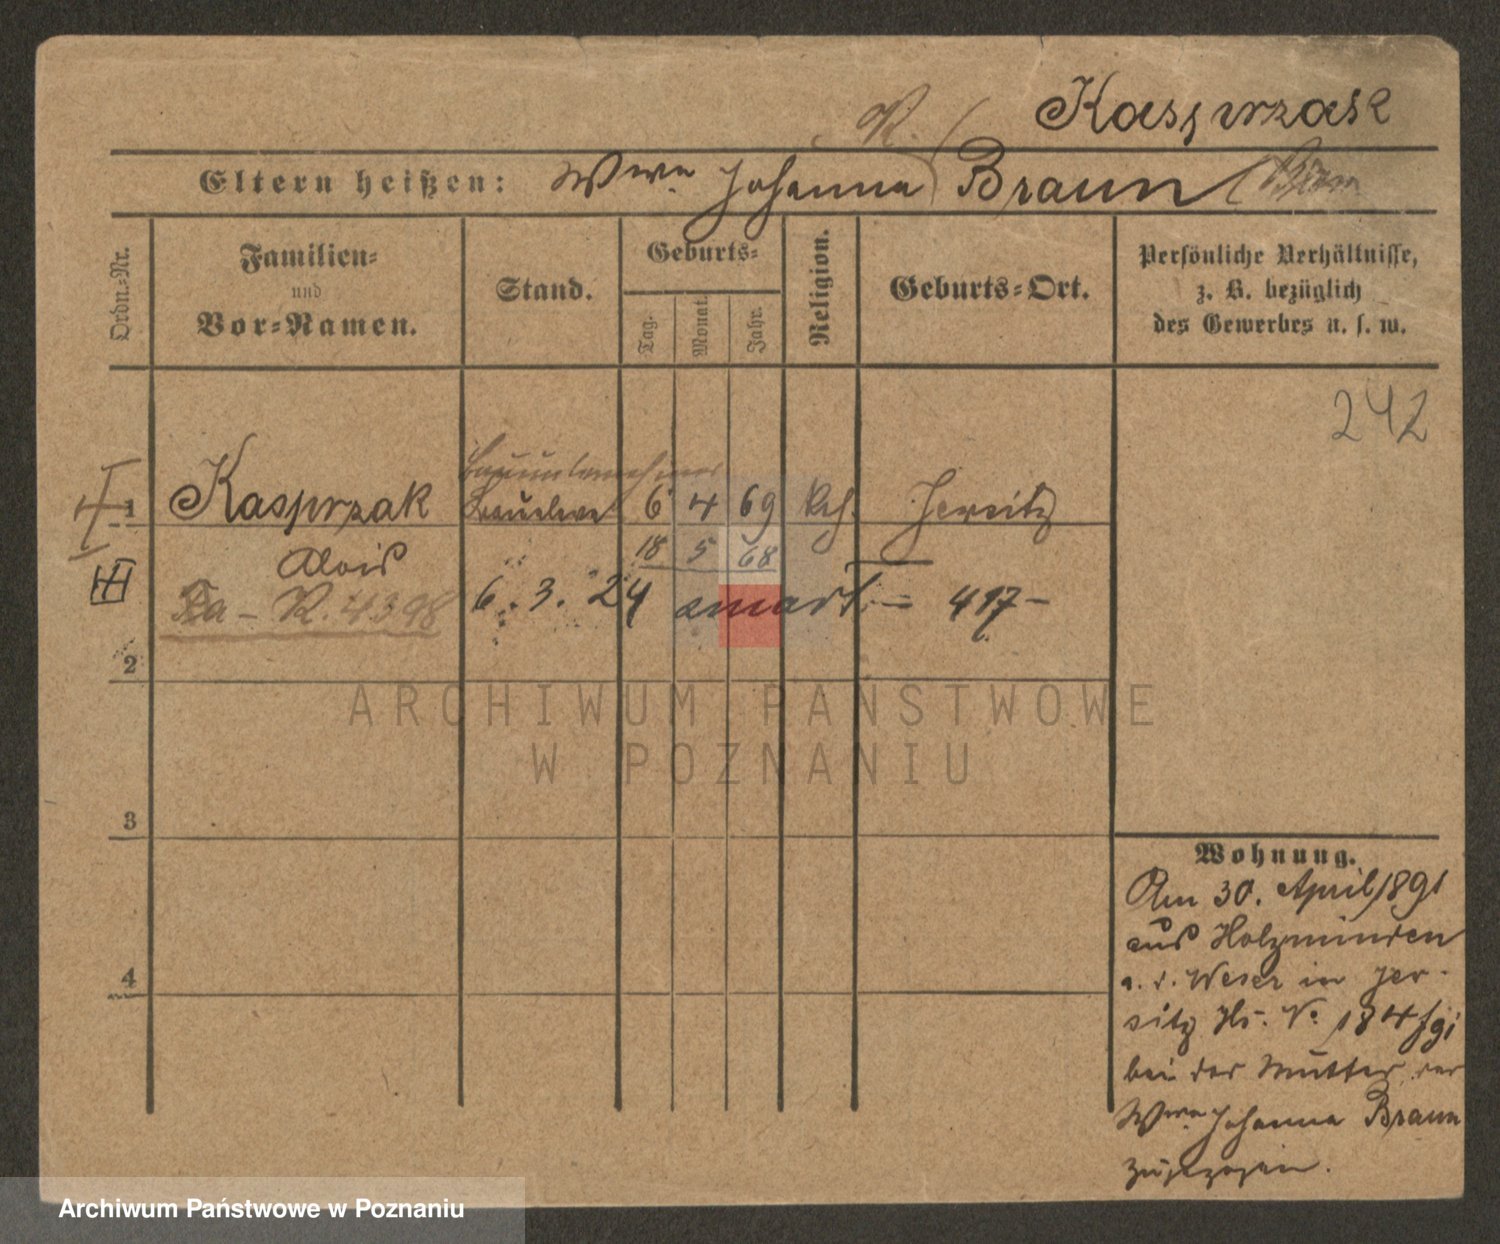 Kasprzak
R.
Eltern heißen: Wwe. Johanna Braun
Ordn.-Nr.
Familien-
und
Vor-Namen.
Stand.
Geburts-
Tag.
Monat.
Jahr.
Religion.
Geburts-Ort.
Persönliche Verhältnisse,
z. B. bezüglich
des Gewerbes u. s. w.
242
Bauunternehmer
1 Kasprzak 6 4 69 kth. Jersitz
Alois 18 5 68
R. 4398 6. 3. 24 zmarł. = 417 -
2
3
4
ARCHIWUM PAŃSTWOWE
W POZNANIU
Wohnung.
Am 30. April 1891
aus Holzminden
a. d. Weser in Jer-
sitz Hs. No 184
bei der Mutter, der
Wwe. Johanna Braun
zugezogen.
Archiwum Państwowe w Poznaniu